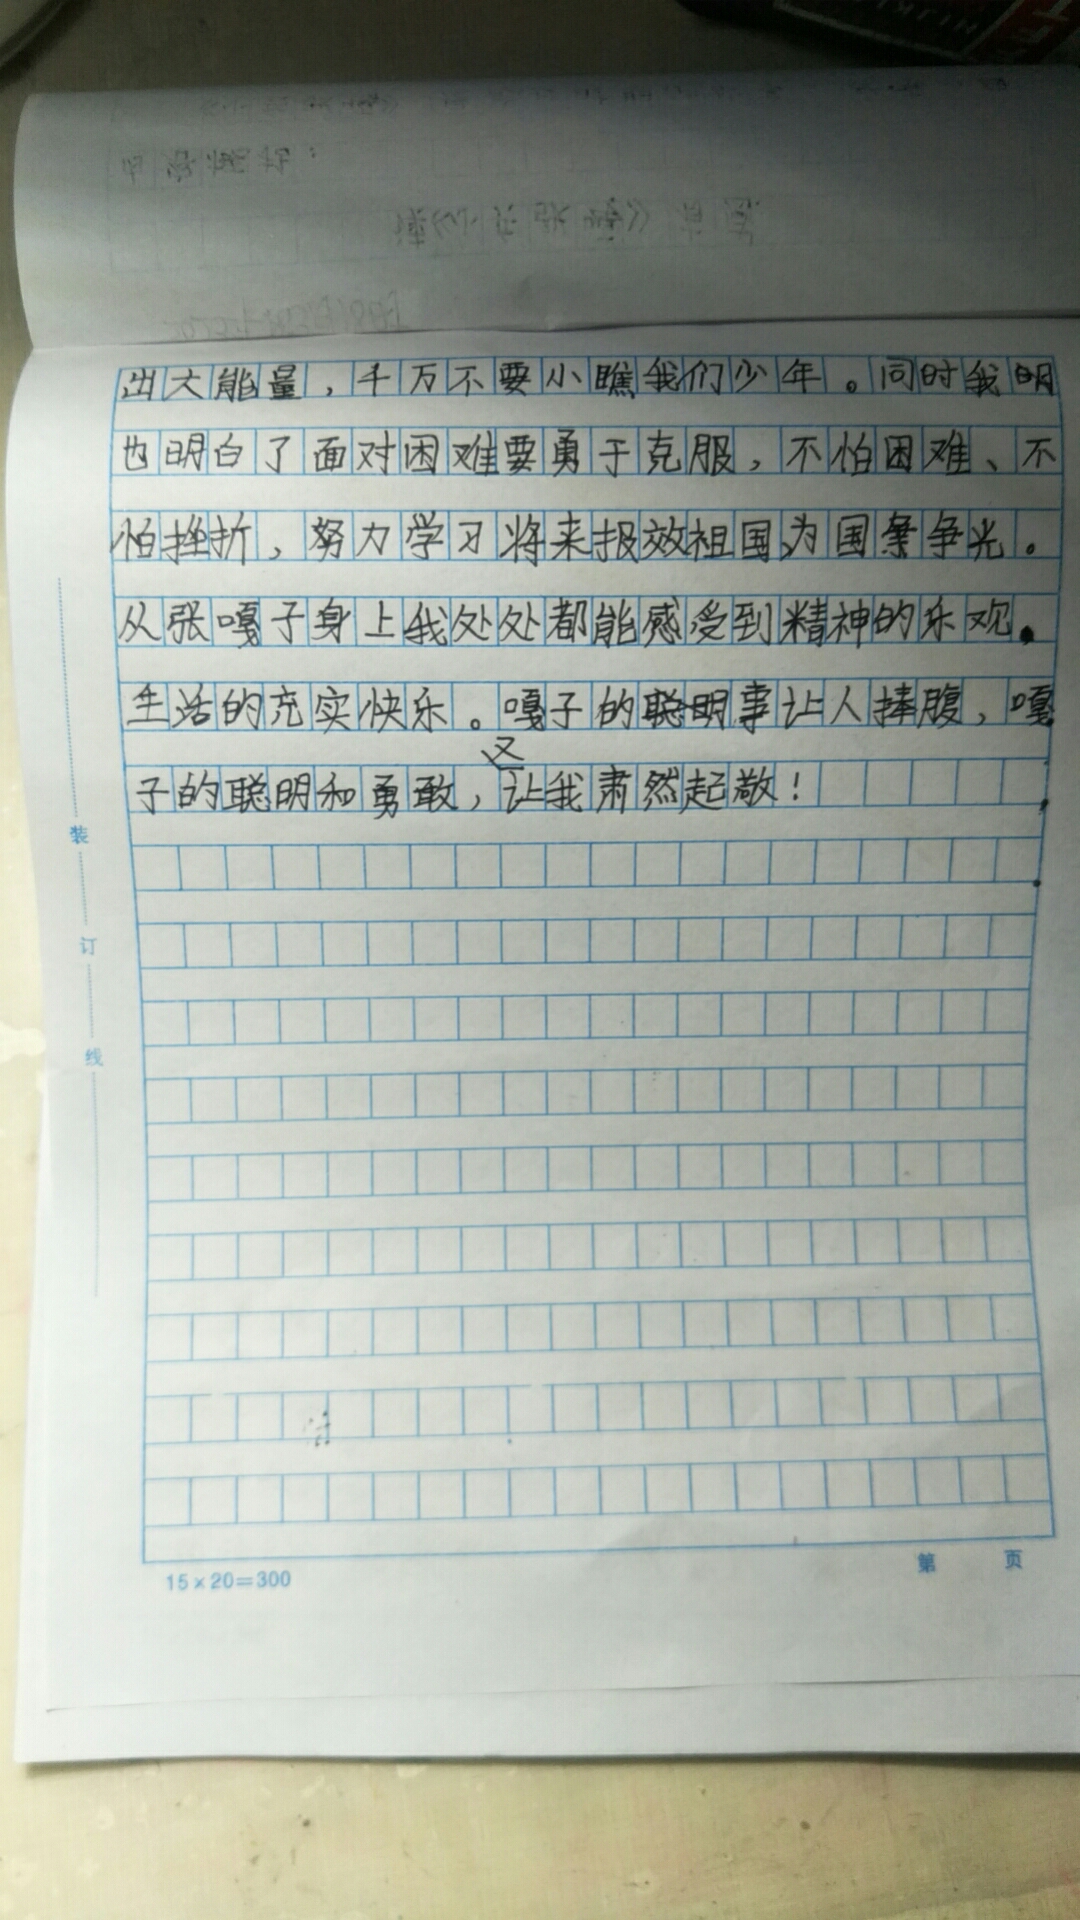 出大能量，千万不要小瞧我们少年。同时我明
也明白了面对困难要勇于克服，不怕困难、不
怕挫折，努力学习将来报效祖国,为国争争光。
从张嘎子身上我处处都能感受到精神的乐观。
生活的充实快乐。嘎子的聪明事让人捧腹，嘎
又
子的聪明和勇敢，让我肃然起敬！
装
订
线
15×20=300
第 页